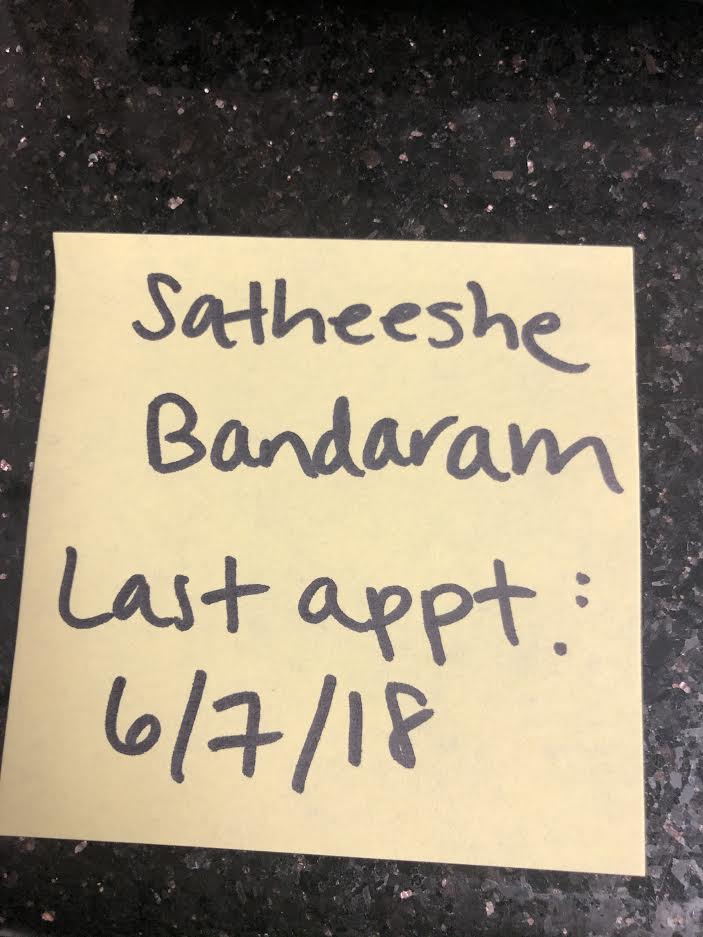 Satheeshe
Bandaram
Last appt.:
6/7/18